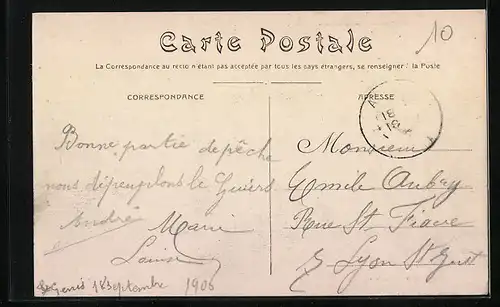 Carte Postale
10
La Correspondance au recto n'étant pas acceptée par tous les pays étrangers, se renseigner à la Poste
CORRESPONDANCE
ADRESSE
Bonne partie de pêche
nous dépeuplons le Guiers
André
Marie
Louise
St Genis 18 Septembre 1906
Monsieur
Emile Aubry
Rue St Fiacre
Lyon St Just